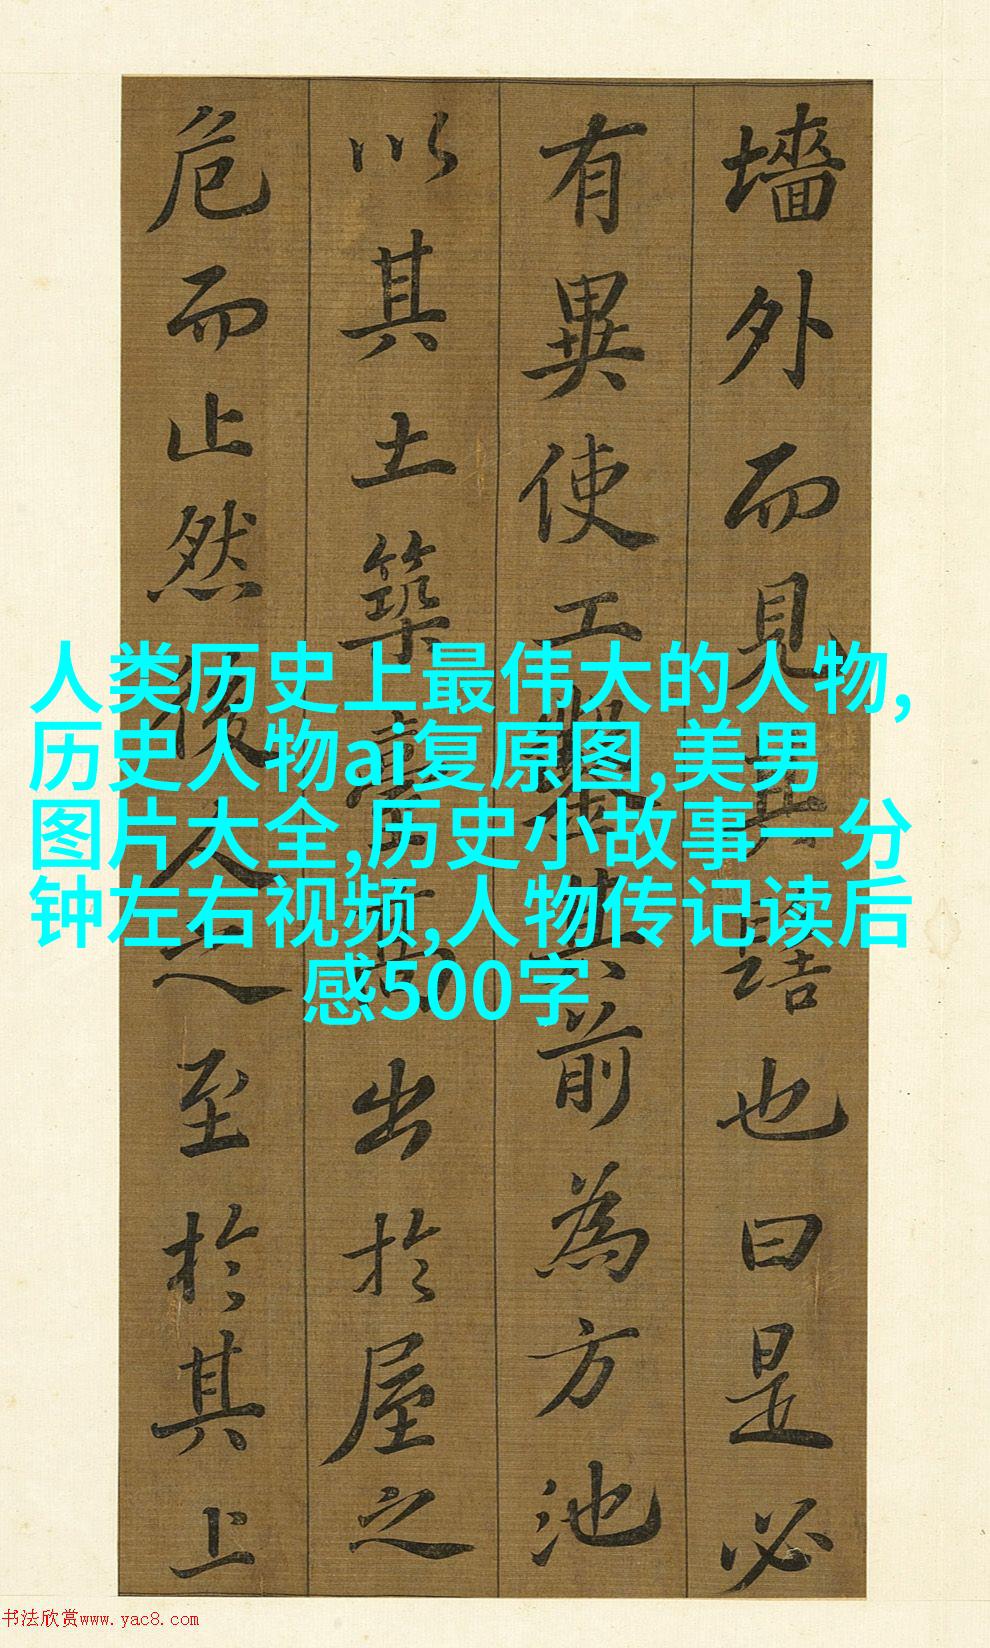 墙外而见其髻也曰是必
有異使工鑿其前為方池
以其土築臺高出於屋之
危而止然後人之至於其上
人类历史上最伟大的人物,
历史人物ai复原图,美男
图片大全,历史小故事一分
钟左右视频,人物传记读后
感500字
书法欣赏www.yac8.com